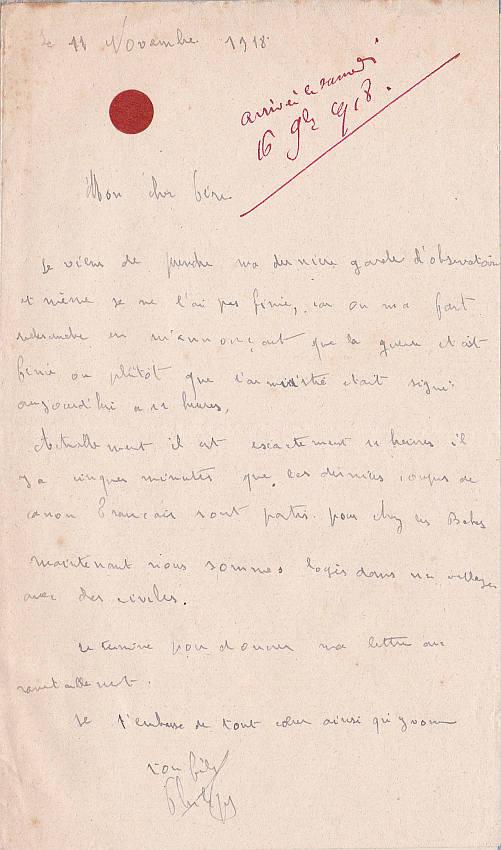 le 11 Novembre 1918
arrivée le samedi
16 9bre 918.
Mon cher Père
Je viens de prendre ma dernière garde d'observatoire
et même je ne l'ai pas finie, car on m'a fait
redescendre en m'annonçant que la guerre était
finie ou plûtôt que l'armistice était signé
aujourd'hui a 11 heures,
Actuellement il est exactement 11 heures il
y a cinques minutes que les derniers coups de
canon Français sont partis pour chez les Boches
maintenant nous sommes logés dans un village
avec des civiles.
Je termine pour donner ma lettre au
ravitaillement.
Je t'embrasse de tout cœur ainsi qu'Yvonne
ton fils